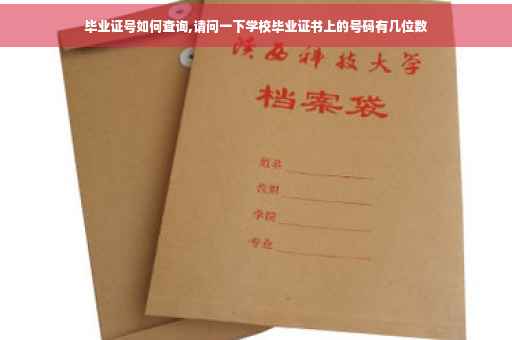 毕业证号如何查询,请问一下学校毕业证书上的号码有几位数
陕西科技大学
档案袋
姓名
学院
专业